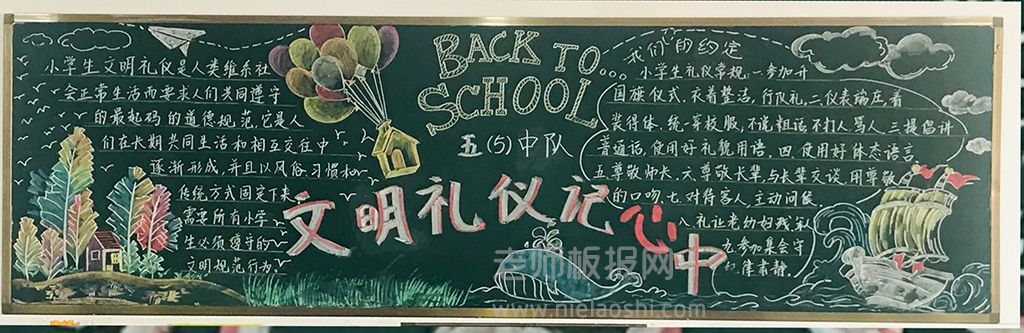 小学生文明礼仪是人类维系社
会正常生活而要求人们共同遵守
的最起码的道德规范,它是人
们在长期共同生活和相互交往中
逐渐形成,并且以风俗习惯和
传统方式固定下来
需要所有小学
生必须遵守的
文明规范行为.
BACK TO
SCHOOL
五(5)中队
文明礼仪记心中
我们的约定
小学生礼仪常规,一参加升
国旗仪式,衣着整洁,行队礼,二仪表端庄,着
装得体,统一穿校服,不说粗话不打人骂人,三提倡讲
普通话,使用好礼貌用语,四、使用好体态语言
五尊敬师长,六尊敬长辈与长辈交谈,用尊敬
的口吻,七.对待客人,主动问候,
八礼让老幼妇残车人
九参加集会守
纪律肃静.
老师板报网
www.nielaoshi.com